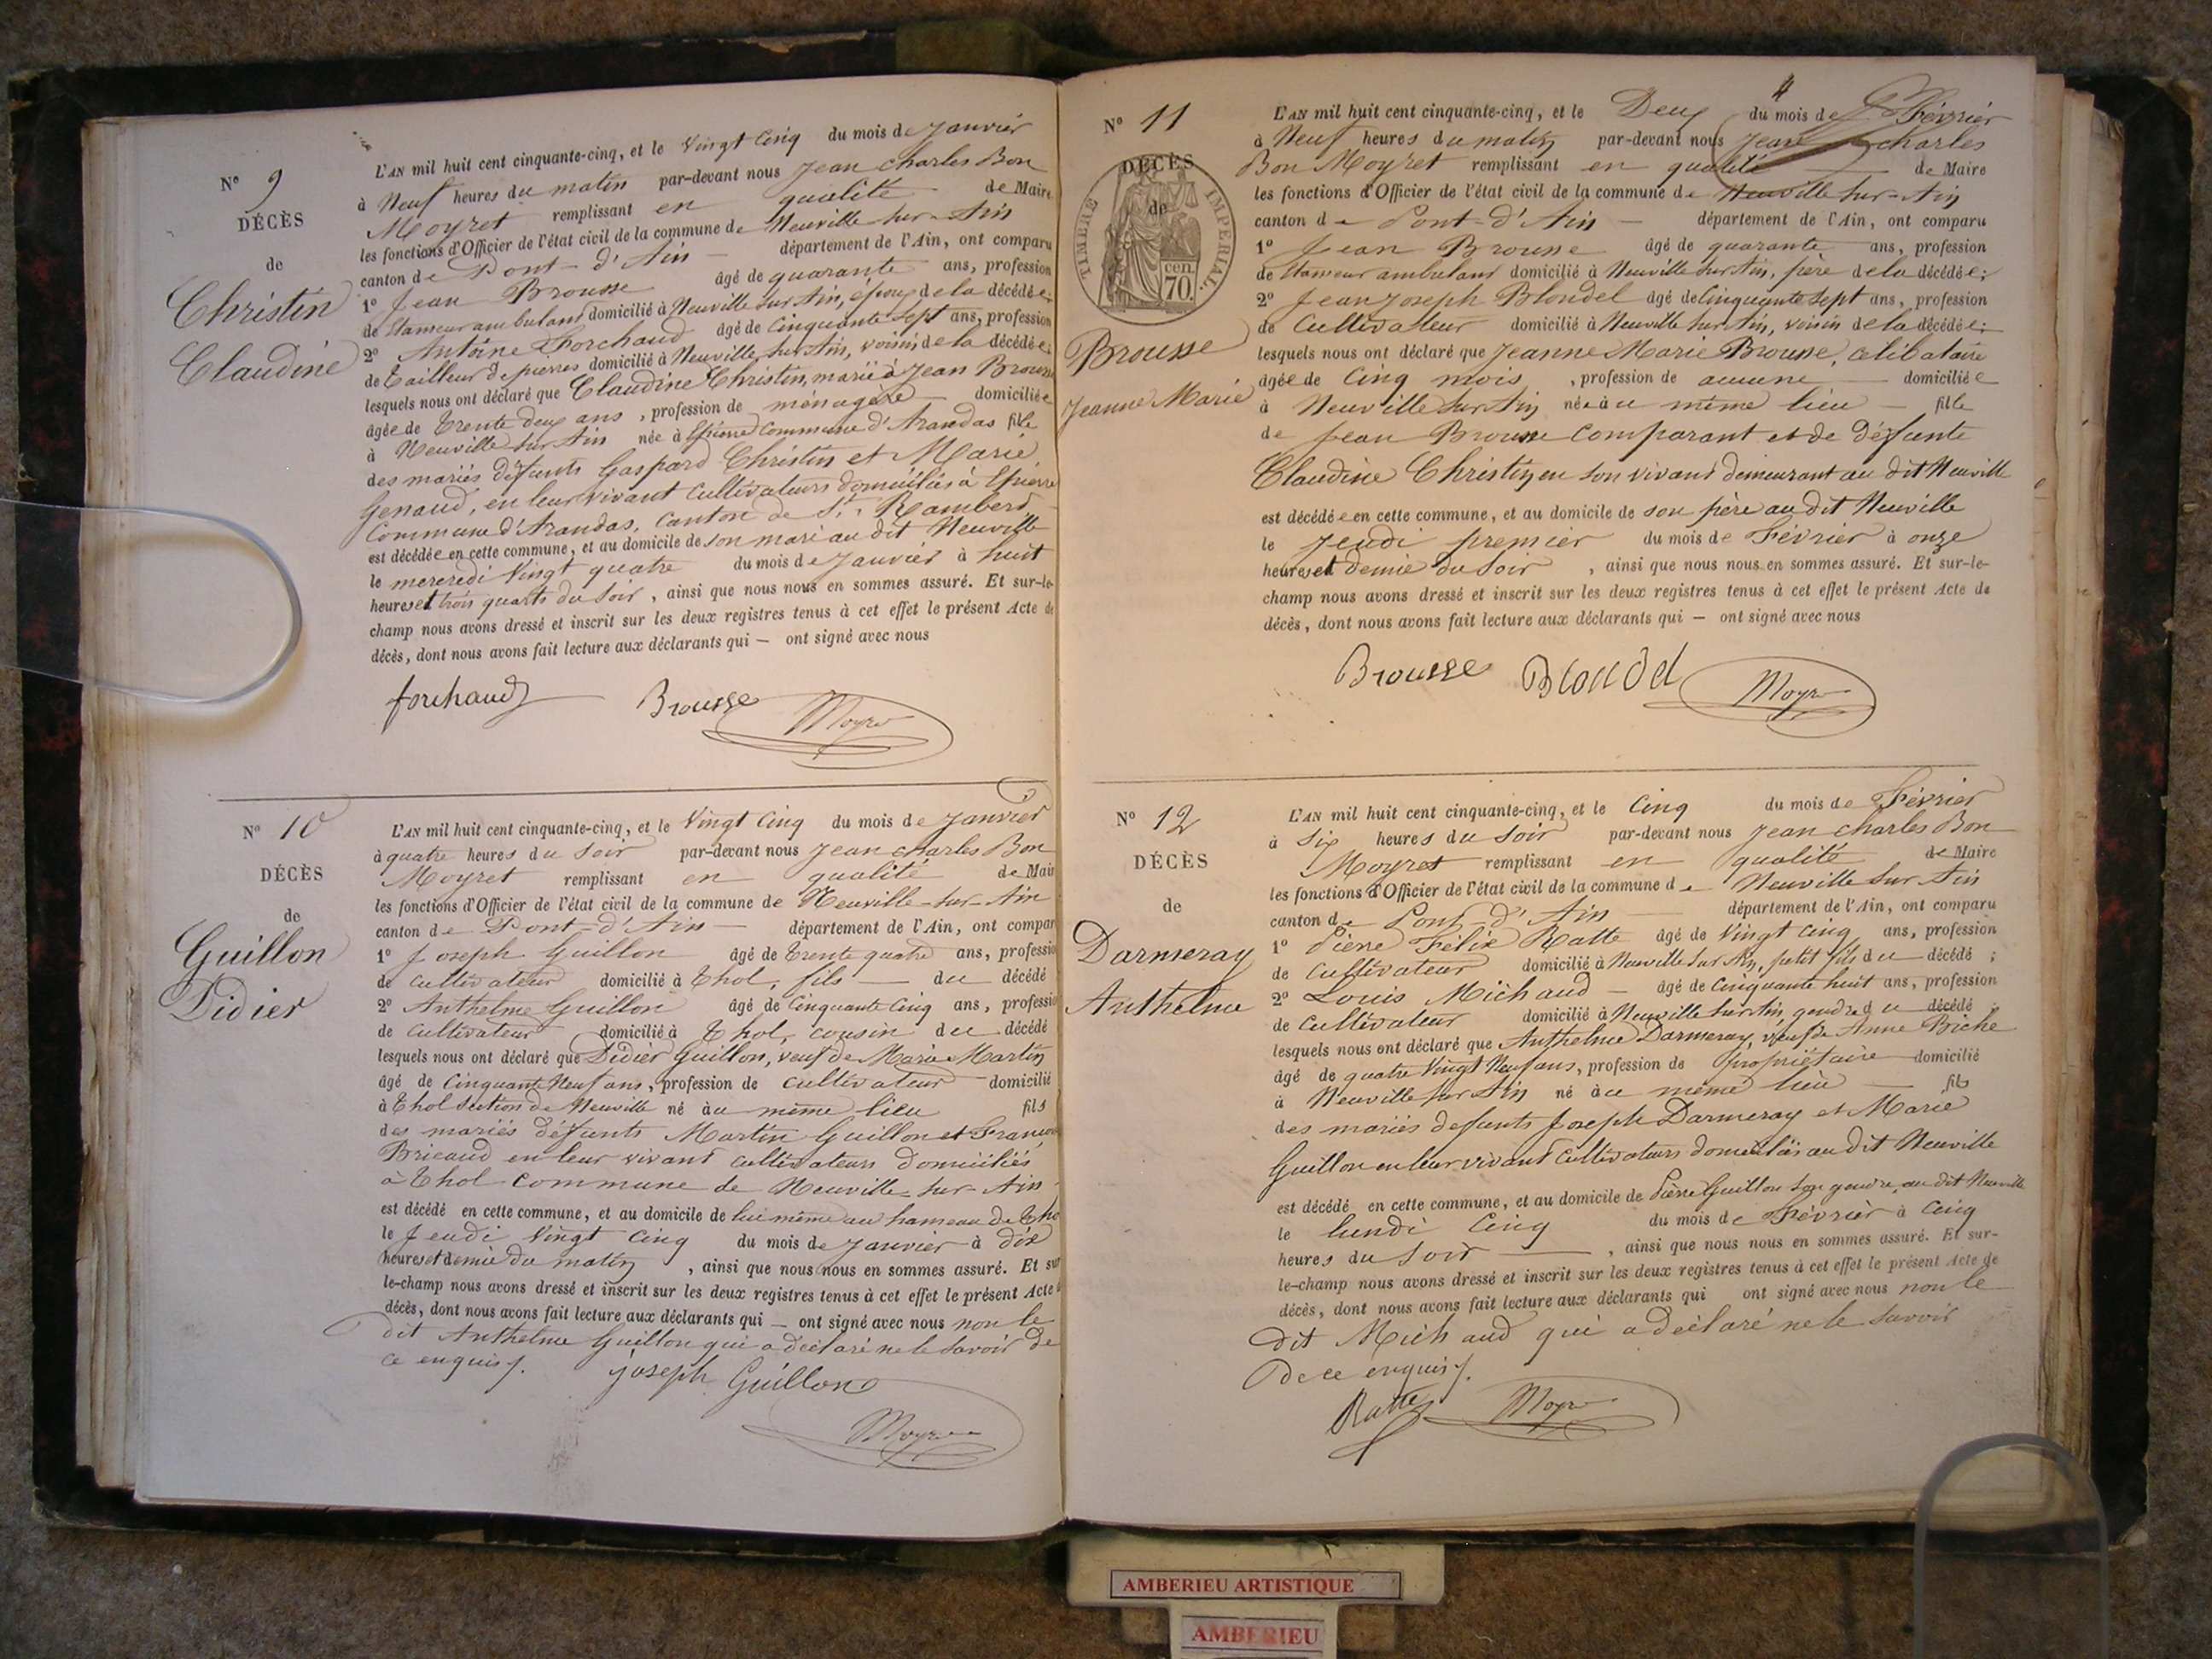 N° 9
DÉCÈS
de
Christin
Claudine
L'AN mil huit cent cinquante-cinq, et le Vingt Cinq du mois de Janvier
à Neuf heures du matin par-devant nous Jean charles Bon
Moyret remplissant en qualité de Maire
les fonctions d'Officier de l'état civil de la commune de Neuville sur-Ain
canton de Pont-d'Ain département de l'Ain, ont comparu
1° Jean Brousse âgé de quarante ans, profession
de Etameur ambulant domicilié à Neuville sur Ain, époux de la décédée;
2° Antoine Forchaud âgé de Cinquante Sept ans, profession
de tailleur de pierres domicilié à Neuville sur Ain, voisin de la décédée;
lesquels nous ont déclaré que Claudine Christin, mariée à Jean Brousse
âgée de Trente deux ans, profession de ménagère domiciliée
à Neuville-sur Ain née à Commune d'Arandas fille
des mariés défunts Gaspard Christin et Marie
Genaud, en leur vivant Cultivateurs domiciliés à
Commune d'Arandas, Canton de St. Rambert
est décédée en cette commune, et au domicile de son mari au dit Neuville
le mercredi Vingt quatre du mois de Janvier à huit
heures et trois quarts du Soir, ainsi que nous nous en sommes assuré. Et sur-le-
champ nous avons dressé et inscrit sur les deux registres tenus à cet effet le présent Acte de
décès, dont nous avons fait lecture aux déclarants qui — ont signé avec nous
forchaud Brousse Moyret
N° 10
DÉCÈS
de
Guillon
Didier
L'AN mil huit cent cinquante-cinq, et le Vingt Cinq du mois de Janvier
à quatre heures du Soir par-devant nous Jean charles Bon
Moyret remplissant en qualité de Mair
les fonctions d'Officier de l'état civil de la commune de Neuville-sur-Ain
canton de Pont-d'Ain département de l'Ain, ont compar
1° Joseph Guillon âgé de Trente quatre ans, professio
de cultivateur domicilié à Thol, fils du décédé
2° Anthelme Guillon âgé de Cinquante Cinq ans, professio
de Cultivateur domicilié à Thol, cousin du décédé
lesquels nous ont déclaré que Didier Guillon, veuf de Marie Martin
âgé de Cinquante Neuf ans, profession de cultivateur domicilié
à Thol Section de Neuville né au même lieu fils
des mariés défunts Martin Guillon et Françoise
Bricaud en leur vivant cultivateurs Domiciliés
à Thol commune de Neuville-sur-Ain
est décédé en cette commune, et au domicile de lui même au hameau de Tho
le Jeudi Vingt Cinq du mois de Janvier à dix
heures et demie du matin, ainsi que nous nous en sommes assuré. Et sur
le-champ nous avons dressé et inscrit sur les deux registres tenus à cet effet le présent Acte
décès, dont nous avons fait lecture aux déclarants qui — ont signé avec nous non le
dit Anthelme Guillon qui a déclaré ne le Savoir de
ce enquis.
joseph Guillon
Moyret
4
N° 11
DÉCÈS
de
TIMBRE IMPÉRIAL
70 cen.
Brousse
Jeanne Marie
L'AN mil huit cent cinquante-cinq, et le Deux du mois de Février
à Neuf heures du matin par-devant nous Jean charles
Bon Moyret remplissant en qualité de Maire
les fonctions d'Officier de l'état civil de la commune de Neuville sur-Ain
canton de Pont-d'Ain département de l'Ain, ont comparu
1° Jean Brousse âgé de quarante ans, profession
de Etameur ambulant domicilié à Neuville sur Ain, père de la décédée;
2° Jean Joseph Blondel âgé de Cinquante Sept ans, profession
de Cultivateur domicilié à Neuville sur Ain, voisin de la décédée;
lesquels nous ont déclaré que Jeanne Marie Brousse, célibataire
âgée de Cinq mois, profession de aucune domiciliée
à Neuville sur Ain née au même lieu fille
de Jean Brousse Comparant et de défunte
Claudine Christin en son vivant demeurant au dit Neuville
est décédée en cette commune, et au domicile de son père au dit Neuville
le Jeudi premier du mois de Février à onze
heures et demie du Soir, ainsi que nous nous en sommes assuré. Et sur-le-
champ nous avons dressé et inscrit sur les deux registres tenus à cet effet le présent Acte de
décès, dont nous avons fait lecture aux déclarants qui — ont signé avec nous
Brousse Blondel Moyret
N° 12
DÉCÈS
de
Darmeray
Anthelme
L'AN mil huit cent cinquante-cinq, et le Cinq du mois de Février
à Six heures du Soir par-devant nous Jean charles Bon
Moyret remplissant en qualité de Maire
les fonctions d'Officier de l'état civil de la commune de Neuville sur Ain
canton de Pont-d'Ain département de l'Ain, ont comparu
1° Pierre Félix Ratte âgé de Vingt Cinq ans, profession
de Cultivateur domicilié à Neuville sur Ain, petit fils du décédé;
2° Louis Michaud âgé de Cinquante huit ans, profession
de Cultivateur domicilié à Neuville sur Ain, gendre du décédé;
lesquels nous ont déclaré que Anthelme Darmeray, veuf de Anne Biche
âgé de quatre Vingt Neuf ans, profession de Propriétaire domicilié
à Neuville sur Ain né au même lieu fils
des mariés défunts Joseph Darmeray et Marie
Guillon en leur vivant Cultivateurs domiciliés au dit Neuville
est décédé en cette commune, et au domicile de Pierre Guillon son gendre, au dit Neuville
le lundi Cinq du mois de Février à Cinq
heures du Soir, ainsi que nous nous en sommes assuré. Et sur-
le-champ nous avons dressé et inscrit sur les deux registres tenus à cet effet le présent Acte de
décès, dont nous avons fait lecture aux déclarants qui ont signé avec nous non le
dit Michaud qui a déclaré ne le Savoir
de ce enquis.
Ratte Moyret
AMBERIEU ARTISTIQUE
AMBERIEU